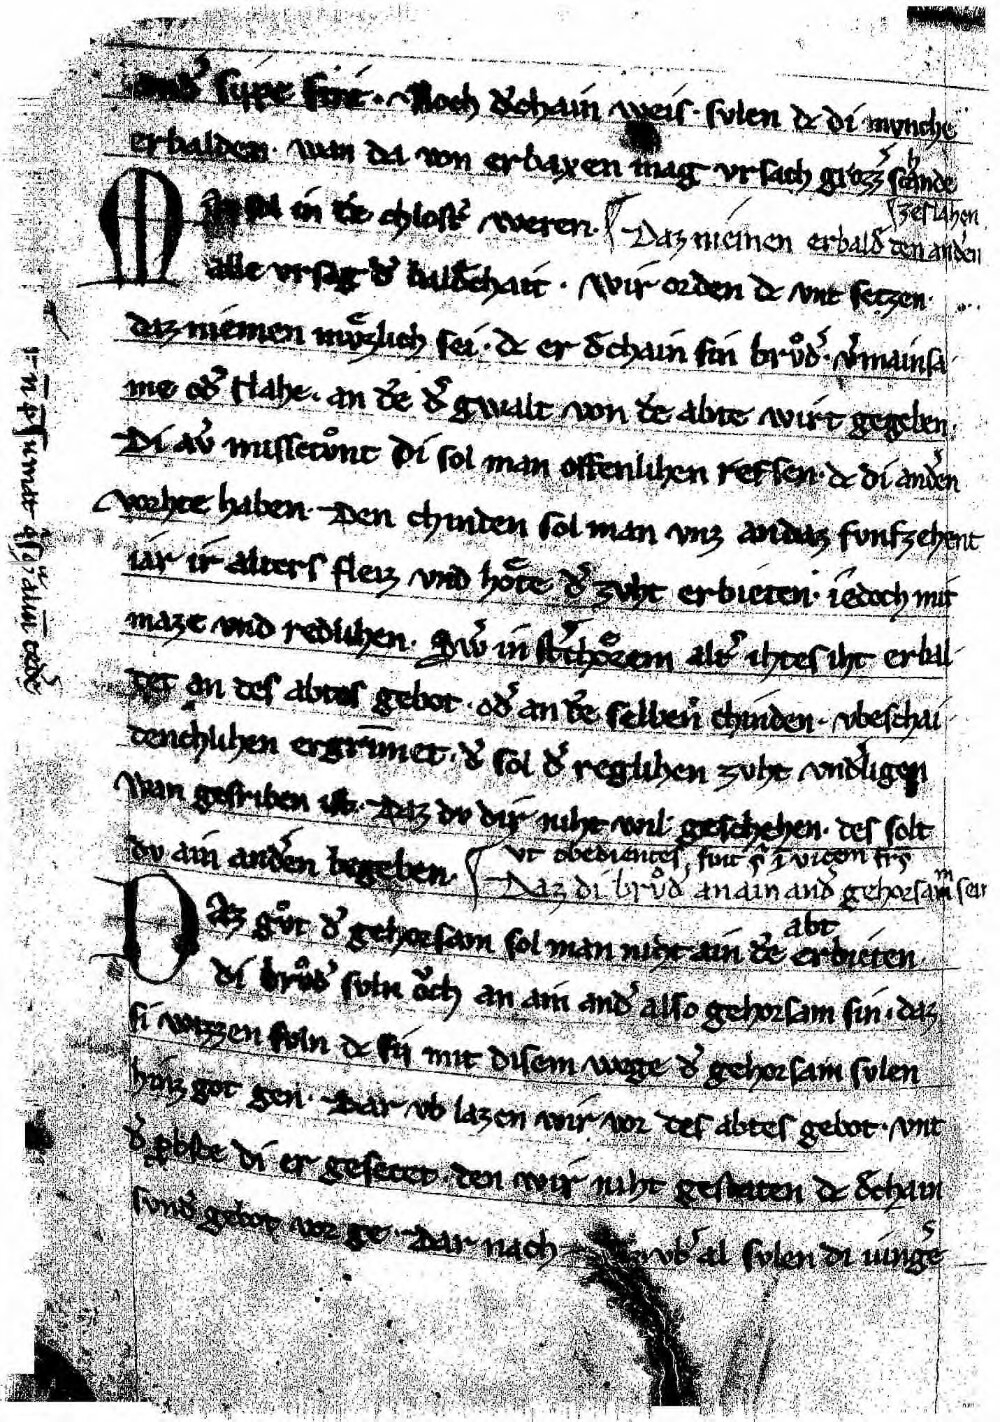 andˢ sippe sint. Noch dˢchain weis. svlen dc di mvnche
erbalden. wan da von erbaxen mag vrsach grozzˢ schande
Man sol in dē chlostˢ weren.
ze slahen
Daz niemen erbaldˢ den andˢn
alle vrsag dˢ baldˢchait. wir orden dc vnt setzen.
daz niemen mvͤzlich sei. dc er dˢchain sin brvͦdˢ. vˢmainsa
me odˢ slahe. an dē dˢ gwalt von dē abte wirt gegeben.
Di avˢ missetvͦnt Di sol man offenlihen refsen. dc di andˢn
vorhte haben. Den chinden sol man vnz an daz funfzehent
iar ir alters fleiz vnd hvͦte dˢ zvht erbieten. iedoch mit
maze vnd redlihen. Swˢ in stˢchorem altˢ ihtes iht erbal
tet an des abtes gebot. odˢ an dē selben chinden. vbeschai
denchlihen ergrimmet. dˢ sol dˢ reglihen zvht vndˢligen
Wan gesriben ist. Daz dv dir niht wil geschehen. des solt
dv ain andˢn begeben.
vt obedientes sint sˢ i vicem frˢs
Daz di brvͦdˢ an ain andˢ gehorsam sein
abt
Daz gvͦt dˢ gehorsam sol man niht ain dē erbieten.
di brvͦdˢ svln ovch an ain andˢ also gehorsam sin. daz
si wizzen svln dc sii mit disem wege dˢ gehorsam svlen
hinz got gen. Dar vb lazen wir vor des abtes gebot. vnt
dˢ pbste di er gesetet. den wir niht gestaten dc dˢchain
svndˢ gebot vor ge. Dar nach vbˢ al svlen di iungˢe